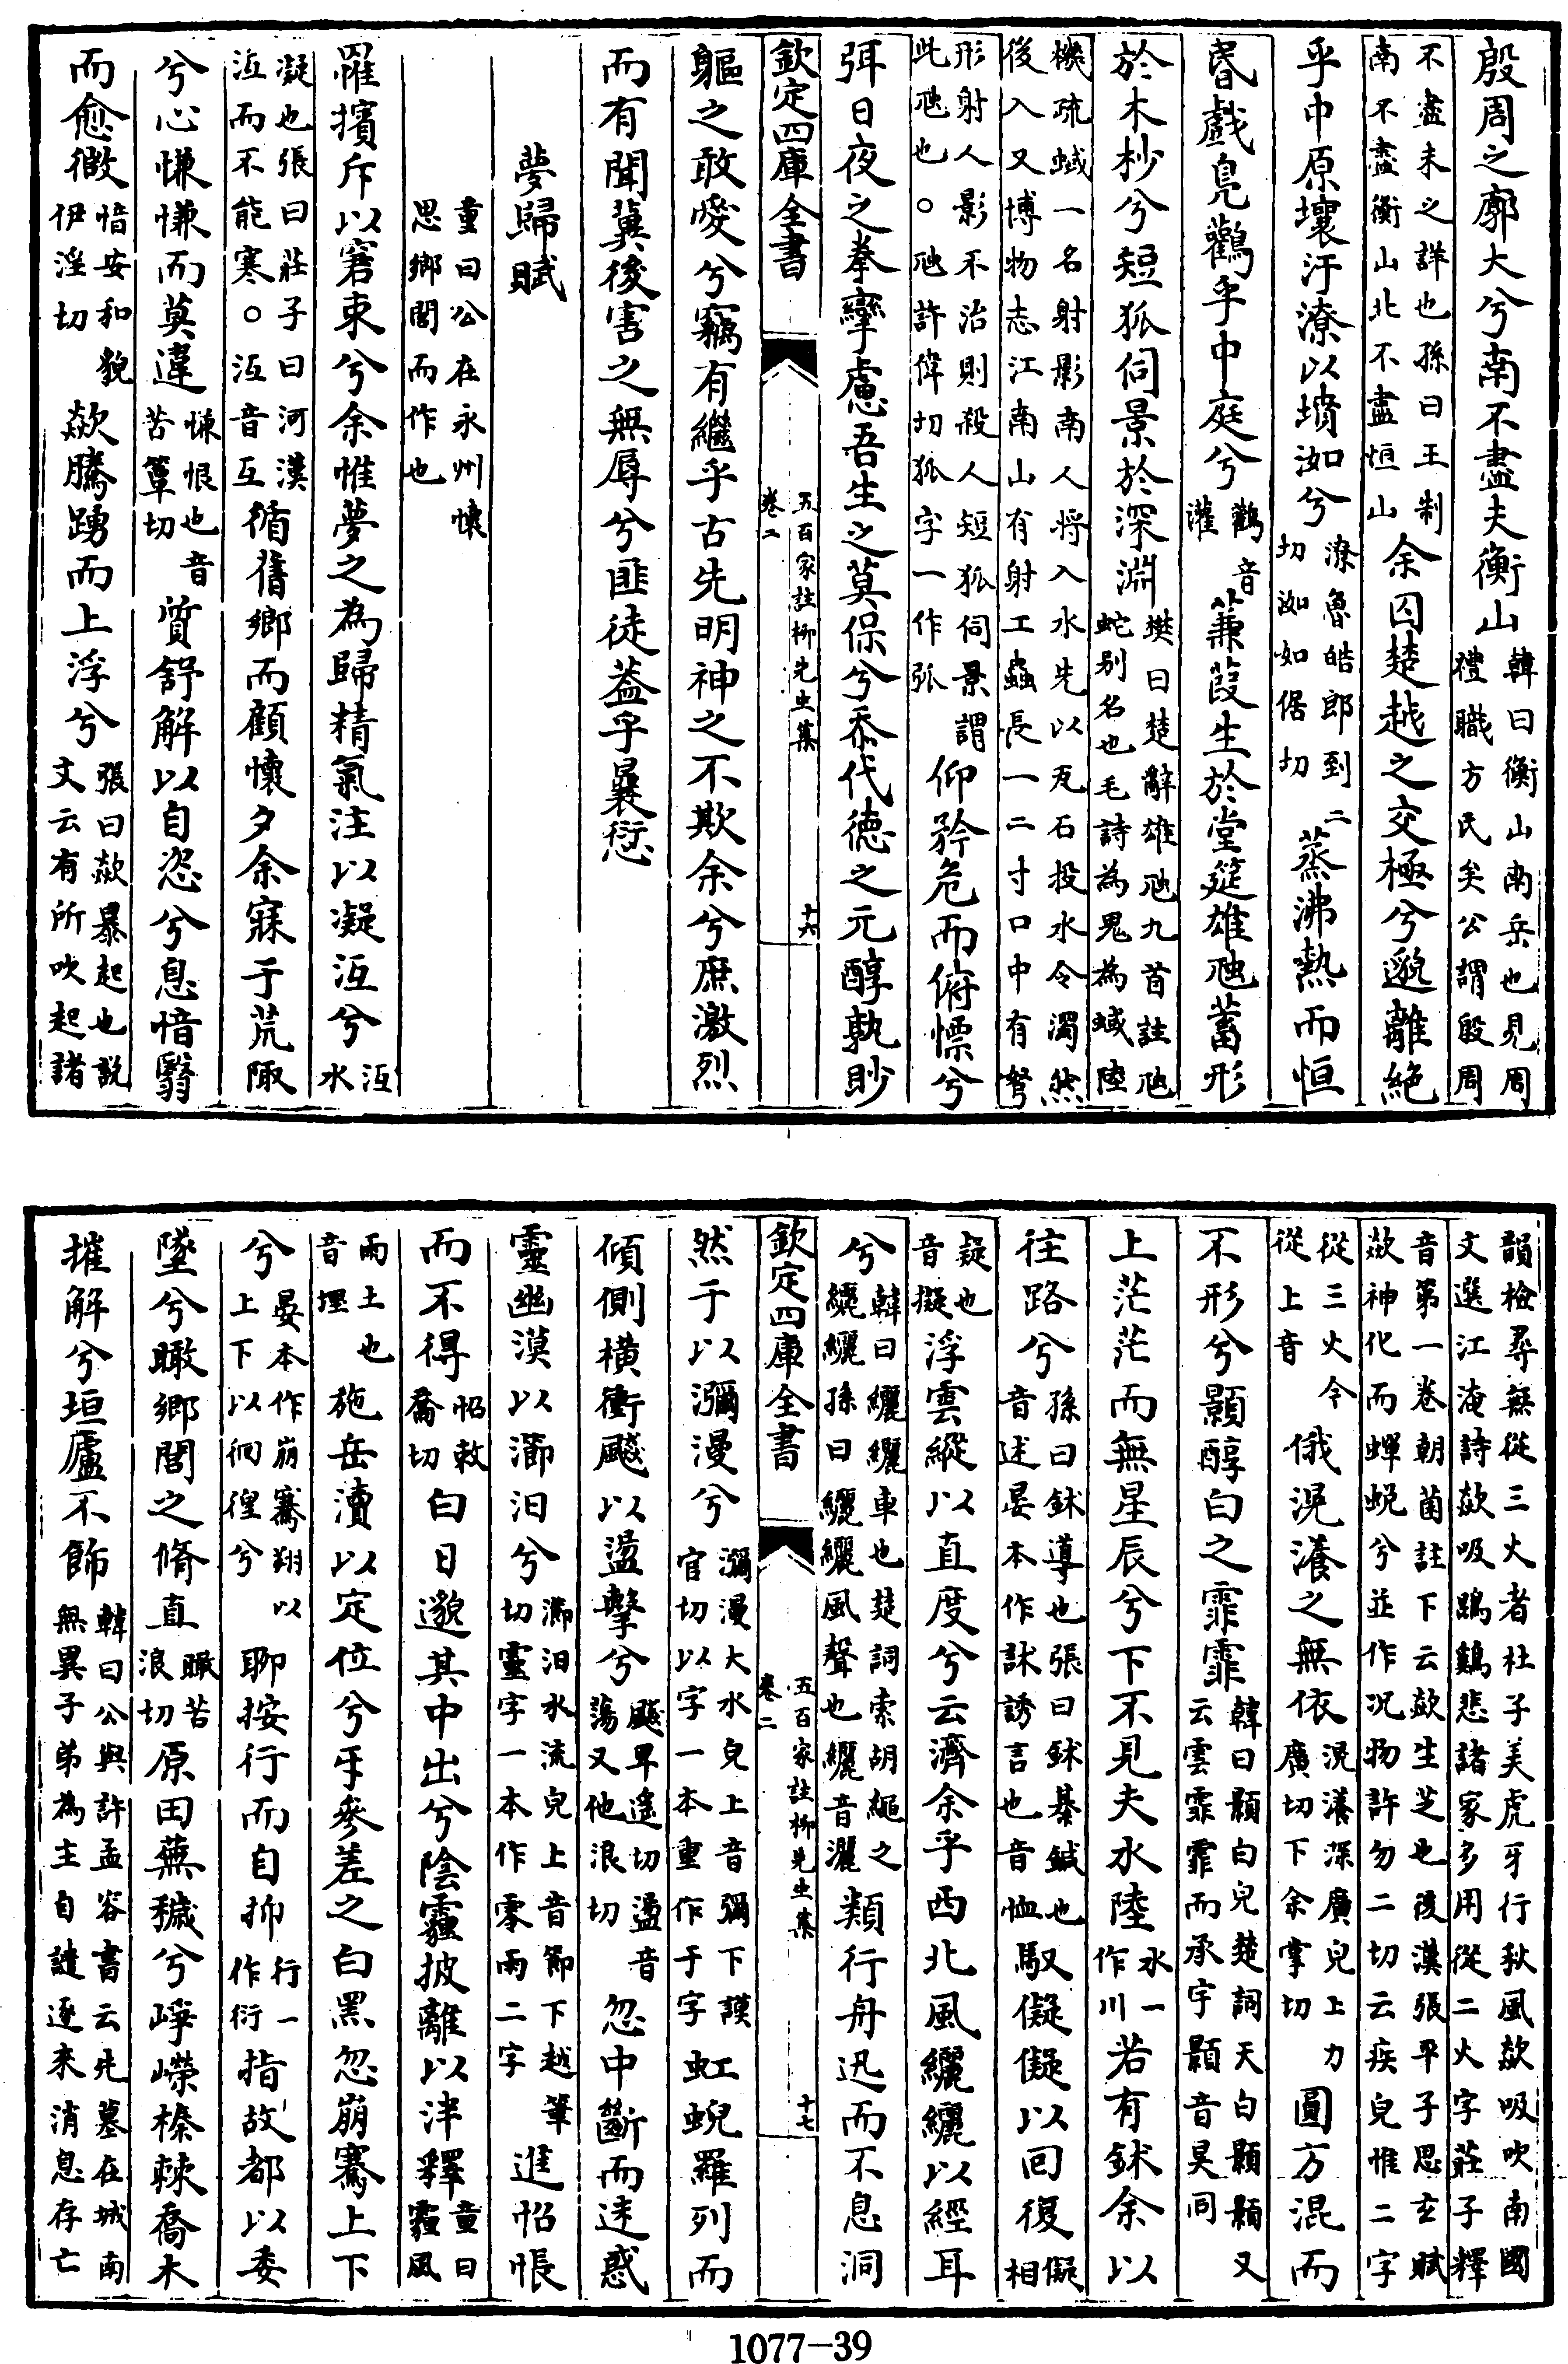 殷周之廓大兮南不盡夫衡山韓曰衡山南岳也見周禮職方氏矣公謂殷周
不盡未之詳也孫曰王制南不盡衡山北不盡恒山余囚楚越之交極兮邈離絶
乎中原壤汙潦以墳洳兮潦魯皓郎到二切洳如倨切蒸沸熱而恒
昬戲鳧鸛乎中庭兮鸛音灌蒹葭生於堂筵雄虺蓄形
於木杪兮短狐伺景於深淵樊曰楚辭雄虺九首註虺蛇别名也毛詩為鬼為蜮陸
機疏蜮一名射影南人將入水先以瓦石投水令濁然後入又博物志江南山有射工蟲長一二寸口中有弩
形射人影不治則殺人短狐伺景謂此虺也○虺許偉切狐字一作弧仰矜危而俯慄兮
弭日夜之拳攣慮吾生之莫保兮忝代德之元醇孰眇
欽定四庫全書 五百家註柳先生集 卷二 十六
軀之敢愛兮竊有繼乎古先明神之不欺余兮庶激烈
而有聞冀後害之無辱兮匪徒蓋乎曩愆
夢歸賦
童曰公在永州懷思鄉閭而作也
罹擯斥以窘束兮余惟夢之為歸精氣注以凝沍兮沍水
凝也張曰莊子曰河漢沍而不能寒○沍音互循舊鄉而顧懷夕余寐于荒陬
兮心慊慊而莫違慊恨也音苦簟切質舒解以自恣兮息愔翳
而愈微愔安和貌伊淫切歘騰踴而上浮兮張曰歘暴起也説文云有所吹起諸
韻檢尋無從三火者杜子美虎牙行秋風歘吸吹南國文選江淹詩歘吸鵾鷄悲諸家多用從二火字莊子釋
音第一卷朝菌註下云歘生芝也後漢張平子思玄賦歘神化而蟬蛻兮並作况物許勿二切云疾皃惟二字
從三火今從上音俄滉瀁之無依滉瀁深廣皃上力廣切下余掌切圓方混而
不形兮顥醇白之霏霏韓曰顥白皃楚詞天白顥顥又云雲霏霏而承宇顥音昊同
上茫茫而無星辰兮下不見夫水陸水一作川若有鉥余以
往路兮孫曰鉥導也張曰鉥綦鍼也音述晏本作訹誘言也音恤馭儗儗以囘復儗相
疑也音擬浮雲縱以直度兮云濟余乎西北風纚纚以經耳
兮韓曰纚纚車也楚詞索胡繩之纚纚孫曰纚纚風聲也纚音灑類行舟迅而不息洞
欽定四庫全書 五百家註柳先生集 卷二 十七
然于以瀰漫兮瀰漫大水皃上音彌下謨官切以字一本重作于字虹蜺羅列而
傾側横衝飈以盪擊兮飈早遥切盪音蕩又他浪切忽中斷而迷惑
靈幽漠以瀄汩兮瀄汩水流皃上音節下越筆切靈字一本作零雨二字進怊悵
而不得怊敕喬切白日邈其中出兮陰霾披離以泮釋童曰霾風
雨土也音埋施岳瀆以定位兮牙參差之白黑忽崩騫上下
兮晏本作崩騫翔以上下以徊徨兮聊按行而自抑行一作衍指故都以委
墜兮瞰鄉閭之脩直瞰苦浪切原田蕪穢兮崢嶸榛棘喬木
摧解兮垣廬不飾韓曰公與許孟容書云先墓在城南無異子弟為主自譴逐來消息存亡
1077-39